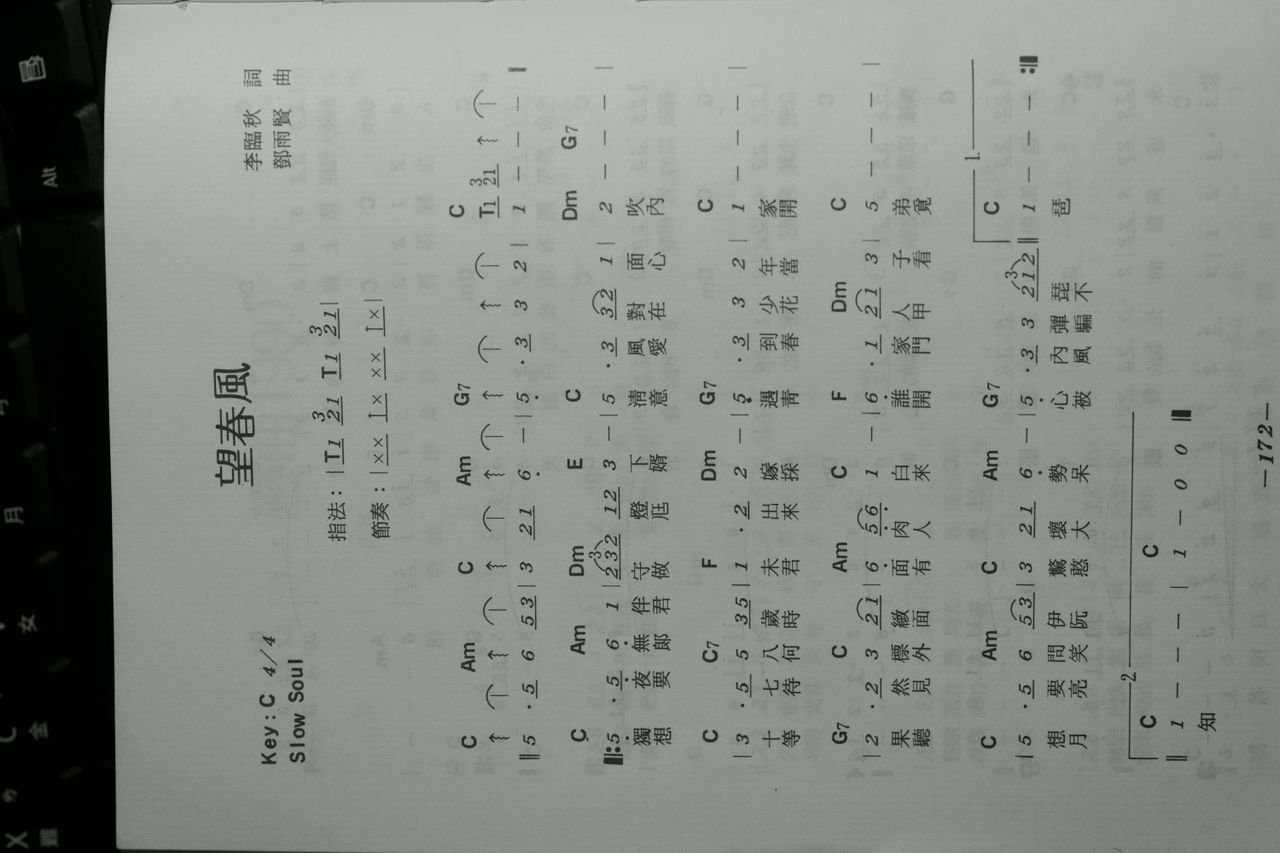 望春風
李臨秋 詞
鄧雨賢 曲
Key: C 4/4
Slow Soul
指法：| T1 3 21 T1 3 21 |
節奏：| ×× 1× ×× 1× |
C Am C Am G7 C T1 3 21
‖ 5 · 5 6 53 | 3 21 6 — | 5 · 3 3 2 | 1 — — —
C Am Dm E C Dm G7
‖: 5 · 5 6 1 | 232 12 3 — | 5 · 3 32 1 | 2 — — — |
獨夜無伴守燈下 清風對面吹
想要郎君做尪婿 意愛在心內
C C7 F Dm G7 C
| 3 · 5 5 35 | 1 · 2 2 — | 5 · 3 3 2 | 1 — — — |
十七八歲未出嫁 遇到少年家
等待何時君來採 青春花當開
G7 C Am C F Dm C
| 2 · 2 3 21 | 6 56 1 — | 6 · 1 21 3 | 5 — — — |
果然標緻面肉白 誰家人子弟
聽見外面有人來 開門甲看覓
C Am C Am G7 1. C
| 5 · 5 6 53 | 3 21 6 — | 5 · 3 3 212 ‖ 1 — — — :‖
想要問伊驚壞勢 心內彈琵琶
月亮笑阮憨大呆 被風騙不
2. C C
‖ 1 — — — | 1 — 0 0 ‖
知
—172—
Alt
月
女
金
X
難